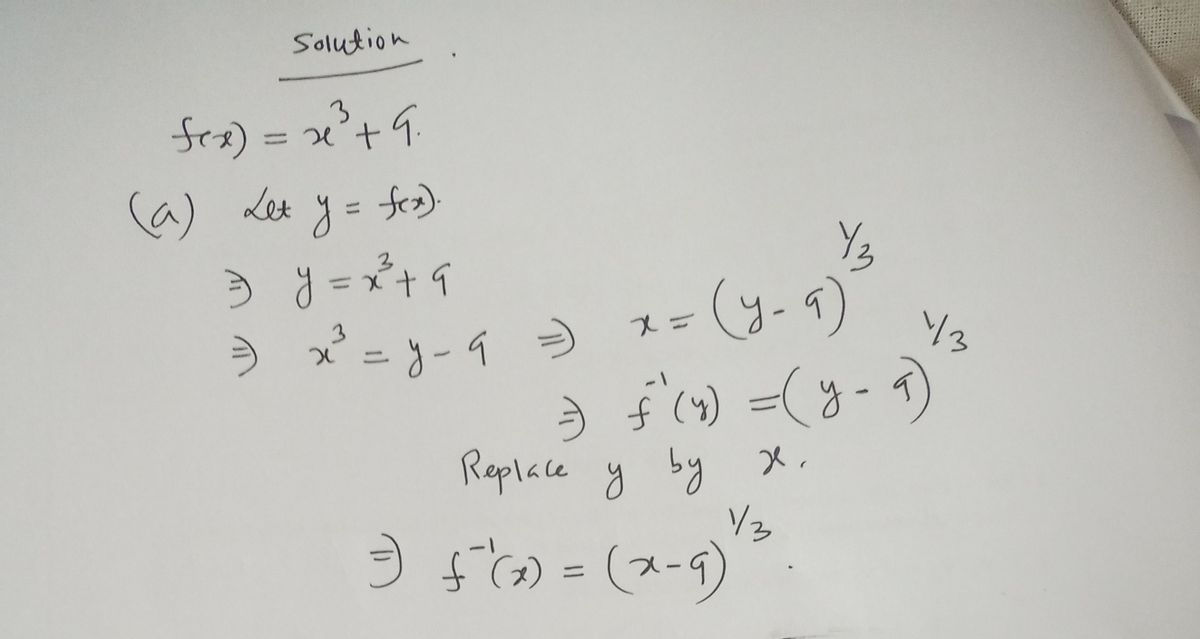 Solution .
f(x) = x³ + 9.
(a) Let y = f(x).
⇒ y = x³ + 9
⇒ x³ = y - 9 ⇒ x = (y - 9)^1/3
⇒ f⁻¹(y) = (y - 9)^1/3
Replace y by x.
⇒ f⁻¹(x) = (x - 9)^1/3 .